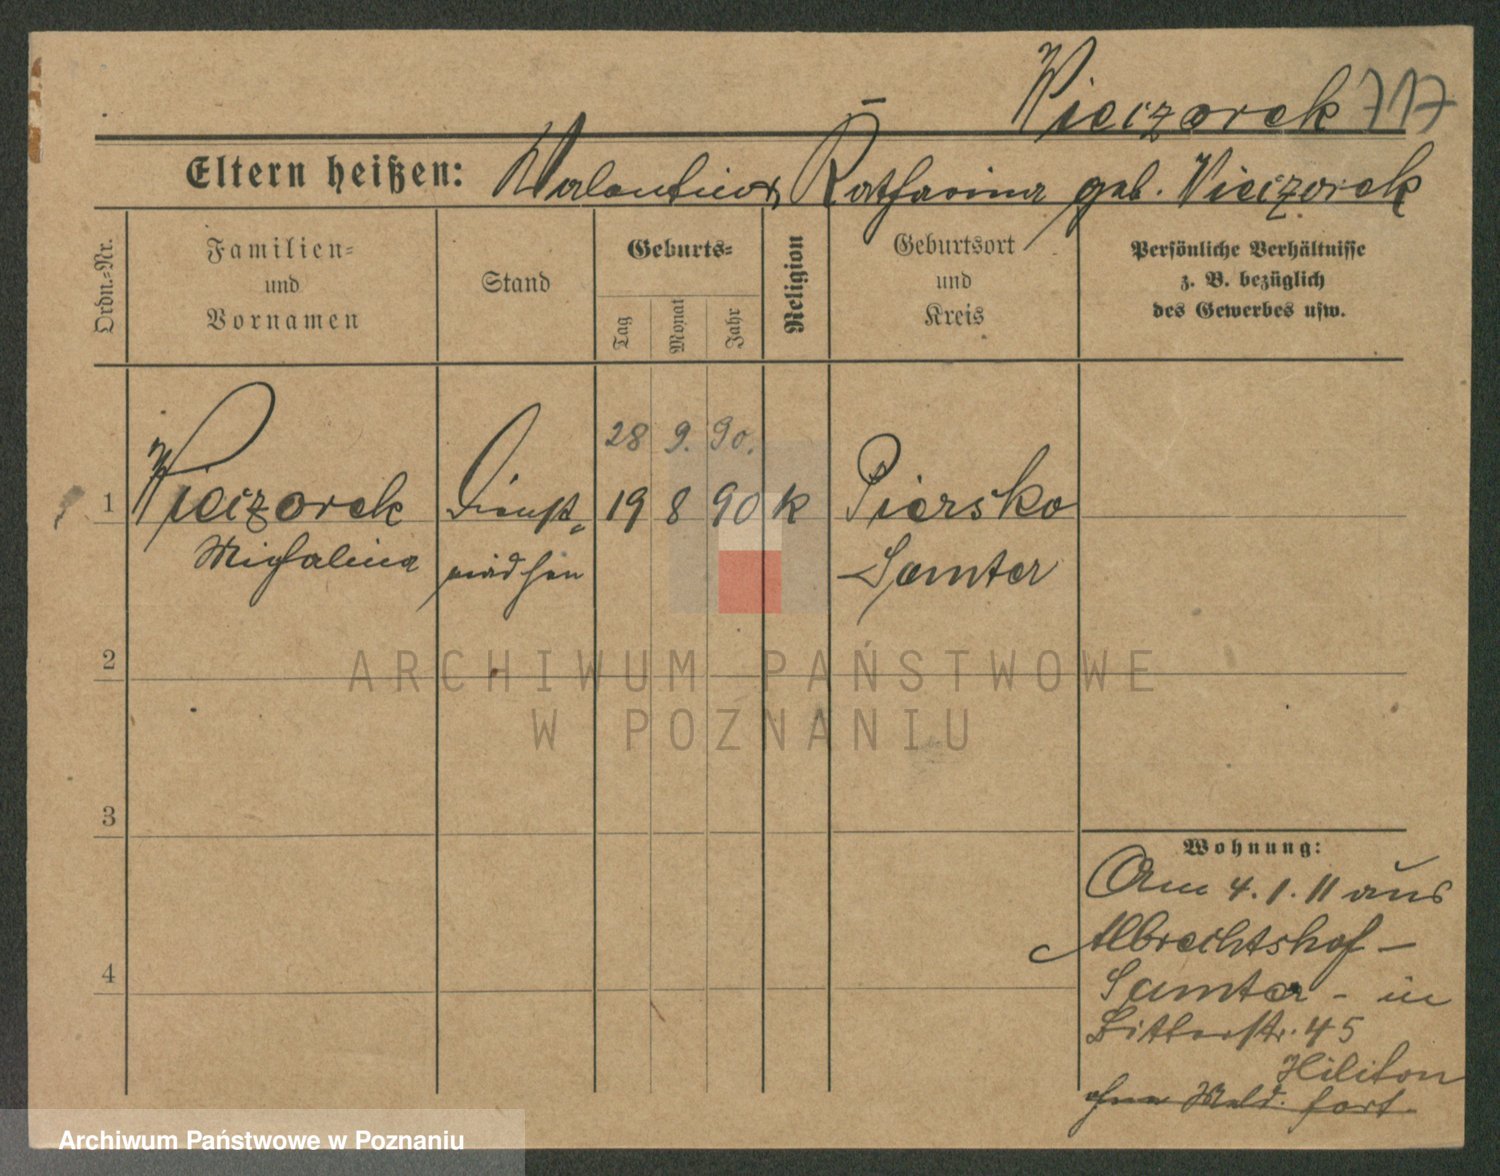 Wieczorek 717
Eltern heißen: Valentin u. Katharina geb. Wieczorek
Ordn.-Nr.
Familien=
und
Vornamen
Stand
Geburts=
Tag
Monat
Jahr
Religion
Geburtsort
und
Kreis
Persönliche Verhältnisse
z. B. bezüglich
des Gewerbes usw.
28 9. 90.
1 Wieczorek Dienst= 19 8 90 k Piersko
Michalina mädchen Samter
2
3
4
Wohnung:
Am 4.1.11 aus
Albrechtshof -
Samter - in
Bitterstr. 45
ohne Meld. fort.
ARCHIWUM PAŃSTWOWE
W POZNANIU
Archiwum Państwowe w Poznaniu